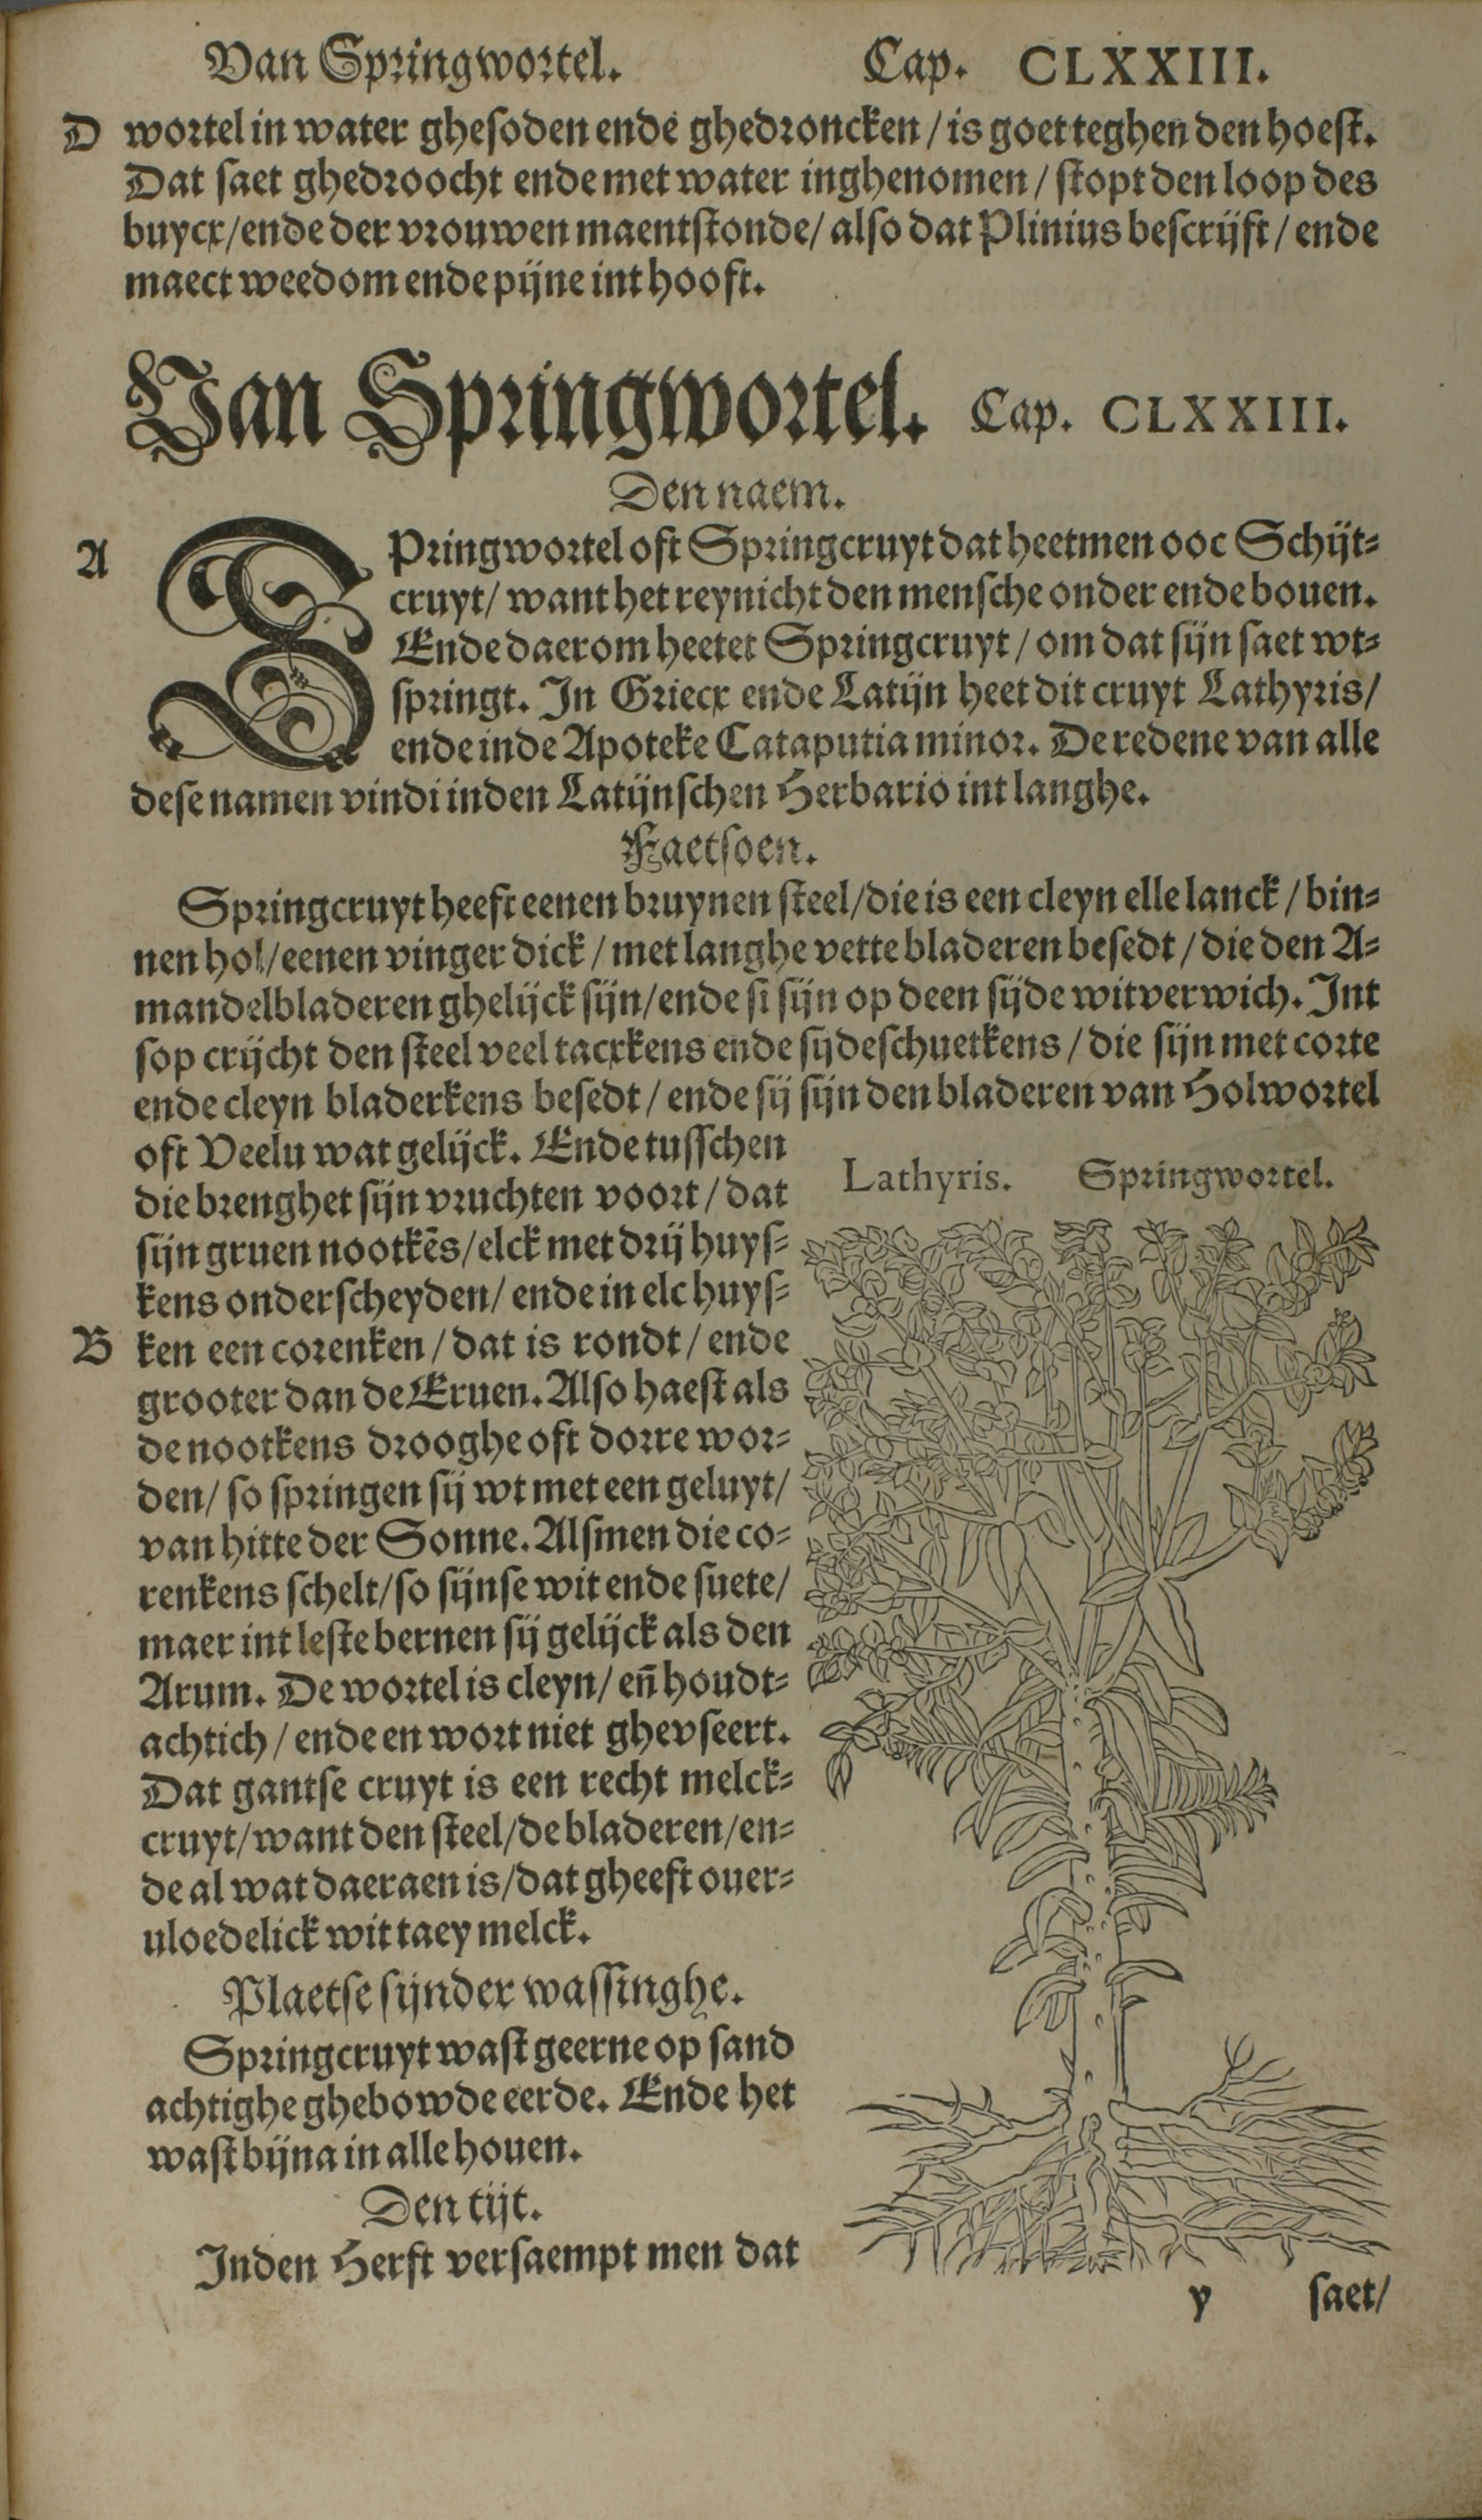 Van Springwortel. Cap. CLXXIII.
D wortel in water ghesoden ende ghedroncken / is goet teghen den hoest.
Dat saet ghedroocht ende met water inghenomen / stopt den loop des
buycx / ende der vrouwen maentstonde / also dat Plinius bescrijft / ende
maect weedom ende pijne int hooft.
Van Springwortel. Cap. CLXXIII.
Den naem.
A SPringwortel oft Springcruyt dat heetmen ooc Schijt⸗
cruyt / want het reynicht den mensche onder ende bouen.
Ende daerom heetet Springcruyt / om dat sijn saet wt⸗
springt. In Griecx ende Latijn heet dit cruyt Lathyris /
ende inde Apoteke Cataputia minor. De redene van alle
dese namen vindi inden Latijnschen Herbario int langhe.
Faetsoen.
Springcruyt heeft eenen bruynen steel / die is een cleyn elle lanck / bin⸗
nen hol / eenen vinger dick / met langhe vette bladeren besedt / die den A⸗
mandelbladeren ghelijck sijn / ende si sijn op deen sijde witverwich. Int
sop crijcht den steel veel tacxkens ende sijdeschuetkens / die sijn met corte
ende cleyn bladerkens besedt / ende sij sijn den bladeren van Holwortel
oft Veelu wat gelijck. Ende tusschen
die brenghet sijn vruchten voort / dat
sijn gruen nootkēs / elck met drij huys⸗
kens onderscheyden / ende in elc huys⸗
B ken een corenken / dat is rondt / ende
grooter dan de Eruen. Also haest als
de nootkens drooghe oft dorre wor⸗
den / so springen sij wt met een geluyt /
van hitte der Sonne. Alsmen die co⸗
renkens schelt / so sijnse wit ende suete /
maer int leste bernen sij gelijck als den
Arum. De wortel is cleyn / eñ houdt⸗
achtich / ende en wort niet ghevseert.
Dat gantse cruyt is een recht melck⸗
cruyt / want den steel / de bladeren / en⸗
de al wat daeraen is / dat gheeft ouer⸗
uloedelick wit taey melck.
Plaetse sijnder wassinghe.
Springcruyt wast geerne op sand
achtighe ghebowde eerde. Ende het
wast bijna in alle houen.
Den tijt.
Inden Herfst versaempt men dat
Lathyris. Springwortel.
y saet /